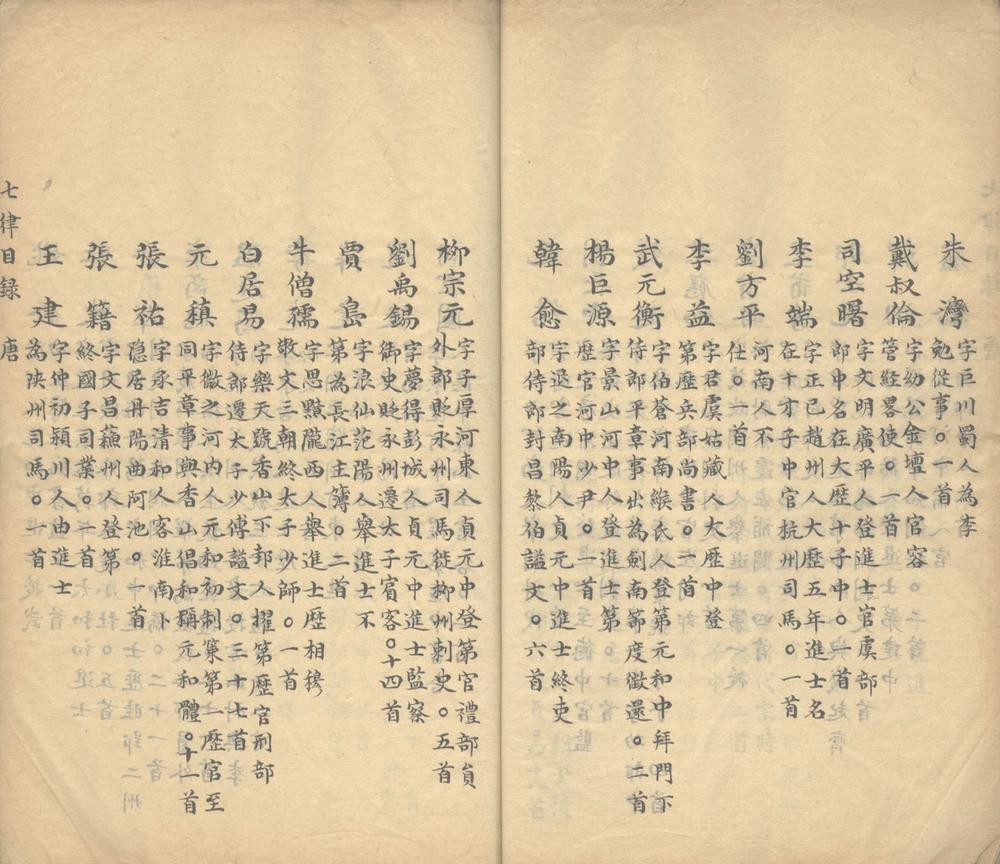 朱灣 字巨川蜀人為李
勉從事○一首
戴叔倫 字幼公金壇人官容
管経畧使○一首
司空曙 字文明廣平人登進士官虞部
郎中名在大歷十子中○一首
李端 字正已趙州人大歷五年進士名
在十才子中官杭州司馬○一首
劉方平 河南人不
仕○一首
李益 字君虞姑藏人大歷中登
第歷兵部尚書○三首
武元衡 字伯蒼河南緱氏人登第元和中拜門下
侍郎平章事出為劍南節度徵還○二首
楊巨源 字景山河中人登進士第
歷官河中少尹○二首
韓愈 字退之南陽人貞元中進士終吏
部侍郎封昌黎伯謚文○六首
柳宗元 字子厚河東人貞元中登第官禮部員
外郎貶永州司馬徙柳州刺史○五首
劉禹錫 字夢得彭城人貞元中進士監察
御史貶永州遷太子賓客○十四首
賈島 字浪仙范陽人舉進士不
第為長江主簿○二首
牛僧孺 字思黯隴西人舉進士歷相穆
敬文三朝終太子少師○一首
白居易 字樂天號香山下邽人擢第歷官刑部
侍郎遷太子少傅謚文○三十七首
元稹 字微之河内人元和初制策第一歷官至
同平章事與香山倡和稱元和體○十一首
張祜 字承吉清和人客淮南卜
隐居丹陽曲阿池○一首
張籍 字文昌蘓州人登第
終國子司業○一首
王建 字仲初穎川人由進士
為陜州司馬○一首
七律目録 唐